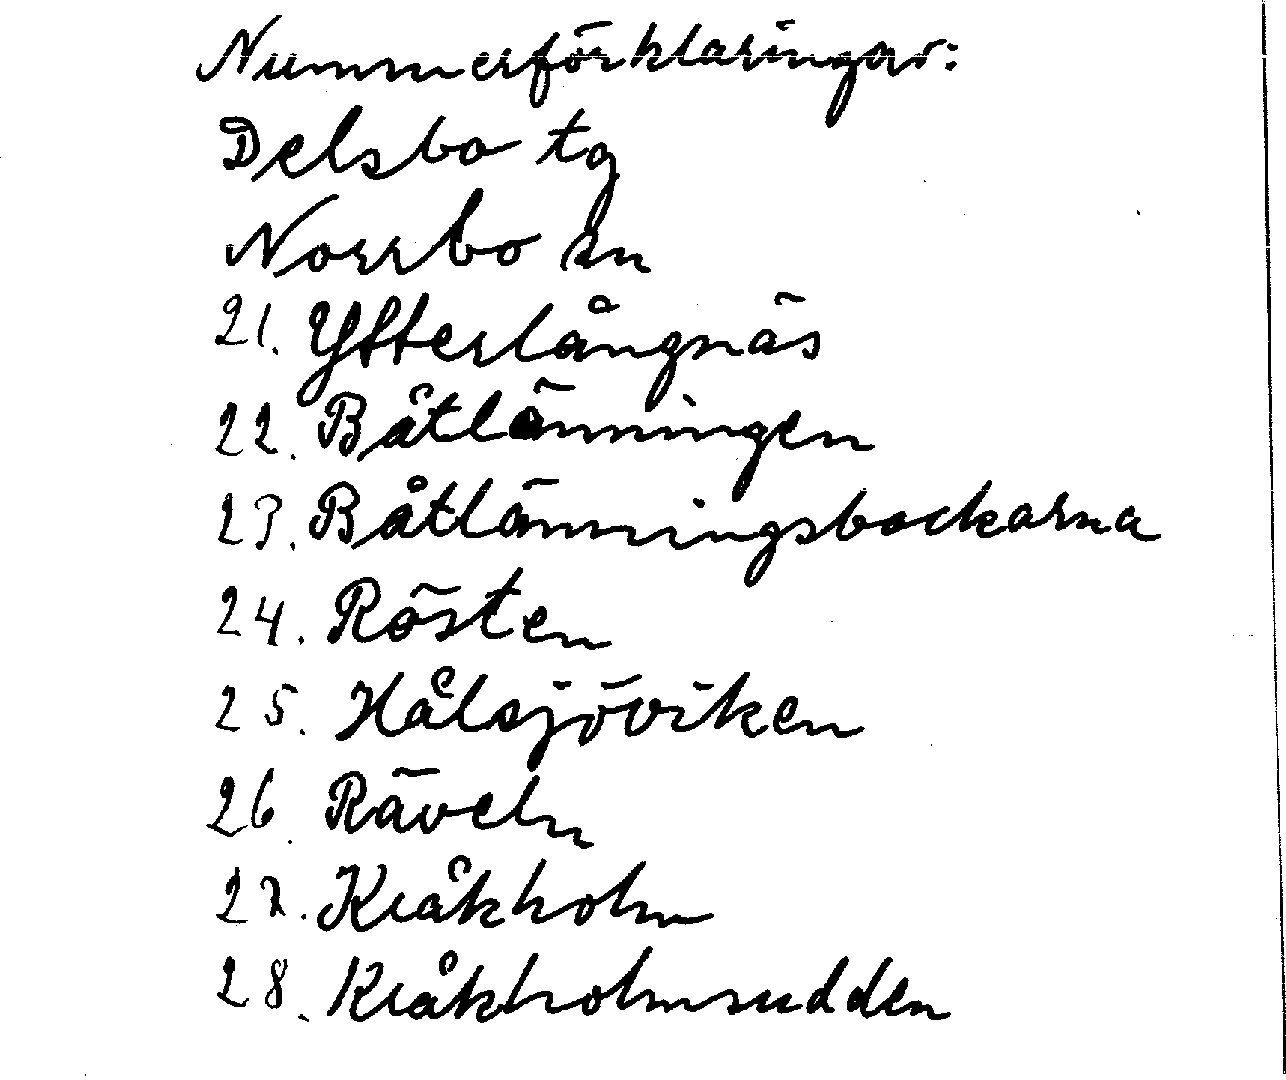 Nummerförklaringar:
Delsbo tg
Norrbo sn
21. Yfterlångnäs
22. Båtlänningen
23. Båtlänningsbackarna
24. Rösten
25. Hålsjöviken
26. Räveln
27. Kråkholm
28. Kråkholmsudden